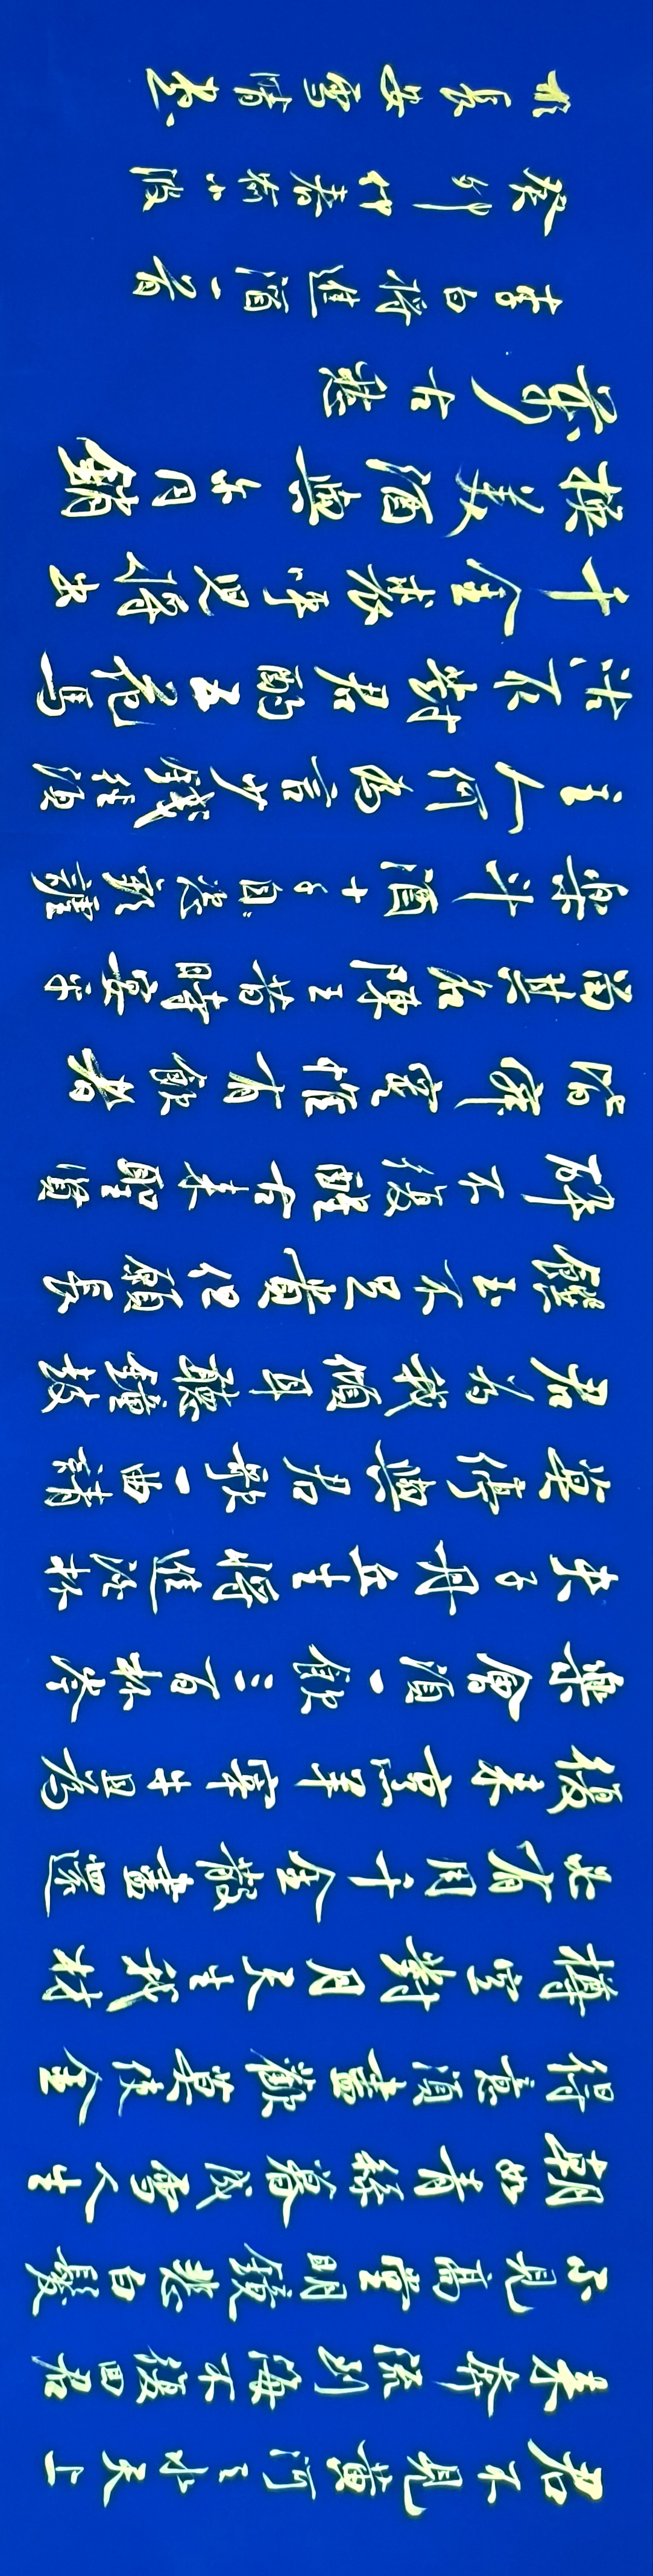 君不見黃河之水天上
来奔流到海不復回君
不見高堂明鏡悲白髮
朝如青絲暮成雪人生
得意須盡歡莫使金
樽空對月天生我材
必有用千金散盡還
復来烹羊宰牛且為
樂會須一飲三百杯岑
夫子丹丘生將進酒杯
莫停與君歌一曲請
君為我傾耳聽鐘鼓
饌玉不足貴但願長
醉不復醒古来聖賢
皆寂寞惟有飲者
留其名陳王昔時宴平
樂斗酒十千恣歡謔
主人何為言少錢徑須
沽取對君酌五花馬
千金裘呼兒將出
換美酒與爾同銷
萬古愁
李白將進酒一首
癸卯春
於長安雪晴